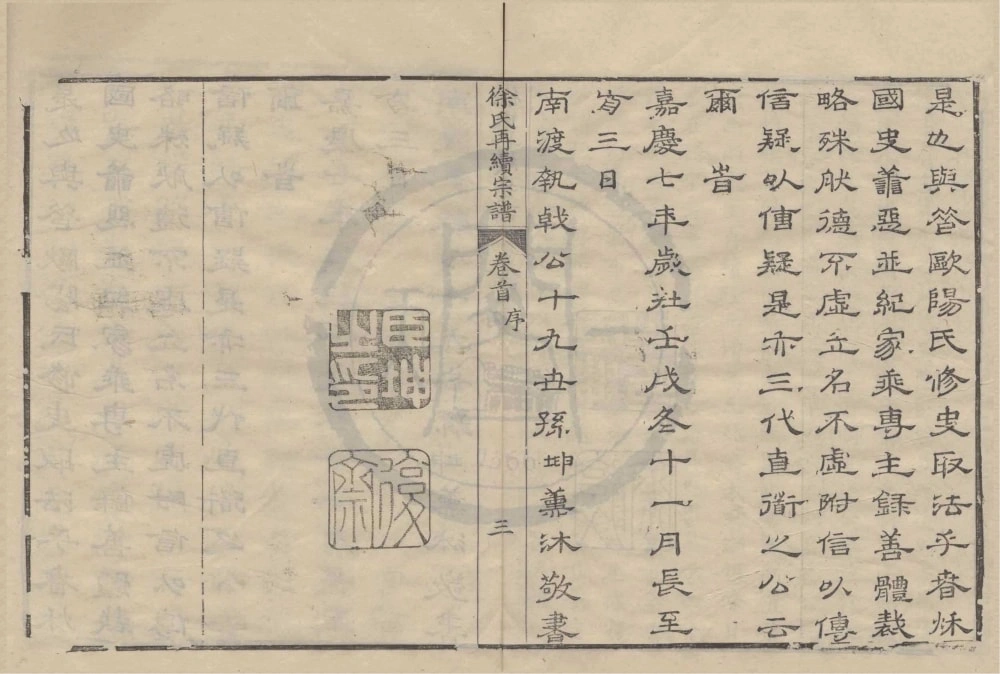 是也與昔歐陽氏修史取法乎春秋
國史善惡並紀家乘專主錄善體裁
略殊然德不虛立名不虛附信以傳
信疑以傳疑是亦三代直衜之公云
爾 旹
嘉慶七年歲在壬戌冬十一月長至
前三日
南渡執戟公十九世孫坤薰沐敬書
徐氏再續宗譜 卷首 序 三
臣坤之印
齋